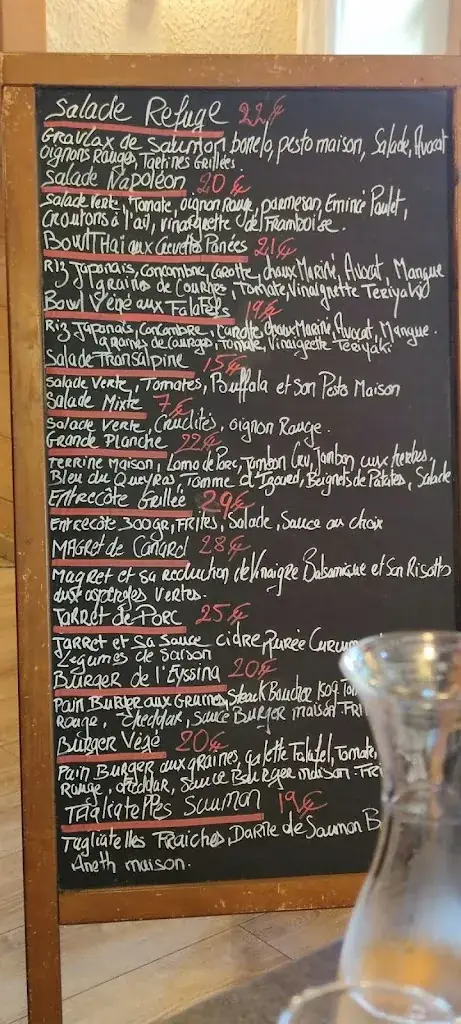 Salade Refuge 22€
Gravlax de Saumon banelo, pesto maison, Salade, Avocat
Oignons Rouge, Tartines Grillées.
Salade Napoléon 20€
Salade Verte, Tomate, oignon Rouge, parmesan, Emincé Poulet,
Croutons à l'ail, vinaigrette de Framboise.
Bowl Thai aux Crevettes Panées 21€
Riz Japonais, Concombre, Carotte, choux Mariné, Avocat, Mangue
graines de Courges, Tomate, Vinaigrette Teriyaki
Bowl Végé aux Falafels 19€
Riz Japonais, Concombre, Carotte, Choux Mariné, Avocat, Mangue.
graines de Courges, Tomate, Vinaigrette Teriyaki
Salade Transalpine 15€
Salade Verte, Tomates, Buffala et Son Pesto Maison
Salade Mixte 7€
Salade Verte, Crudités, oignon Rouge.
Grande Planche 22€
Terrine Maison, Lomo de Porc, Jambon Cru, Jambon aux herbes,
Bleu du Queyras, Tomme d'Izoard, Beignets de Patates, Salade
Entrecôte Grillée 29€
Entrecôte 300gr, Frites, Salade, Sauce au choix
Magret de Canard 28€
Magret et sa reduction de Vinaigre Balsamique et Son Risotto
aux asperges vertes.
Jarret de Porc 25€
Jarret et Sa Sauce cidre, Purée
Légumes de Saison
Burger de l'Eyssina 20€
Pain Burger aux Graines, Steack Boucher 180g
Rouge, cheddar, Sauce Burger maison
Burger Végé 20€
Pain Burger aux graines, galette Falafel, Tomate,
Rouge, cheddar, Sauce Bourger maison
Tagliatelles Saumon 19€
Tagliatelles Fraiches, Darne de Saumon
Aneth maison.